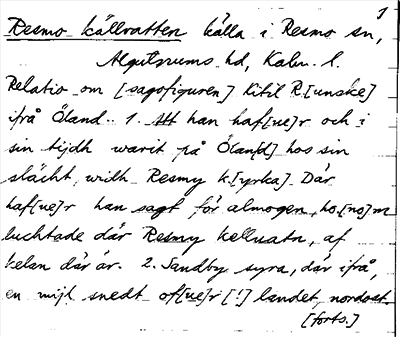 1
Resmo källvatten källa i Resmo sn,
Algutsrums hd, Kalm. l.
Relatio om [sagofiguren] Kitil R.[unske]
ifrå Öland. 1. Att han haf[ue]r och i
sin tijdh warit på Ölan[d] hos sin
slächt, widh Resmy k.[yrka] Där
haf[ue]r han sagt för almogen, ho.[no]m
luchtade där Resmy kelluatn, af
kelan där är. 2. Sandby syra, där ifrå,
en mijl snedt of[ue]r [!] landet, nordost.
[forts.]